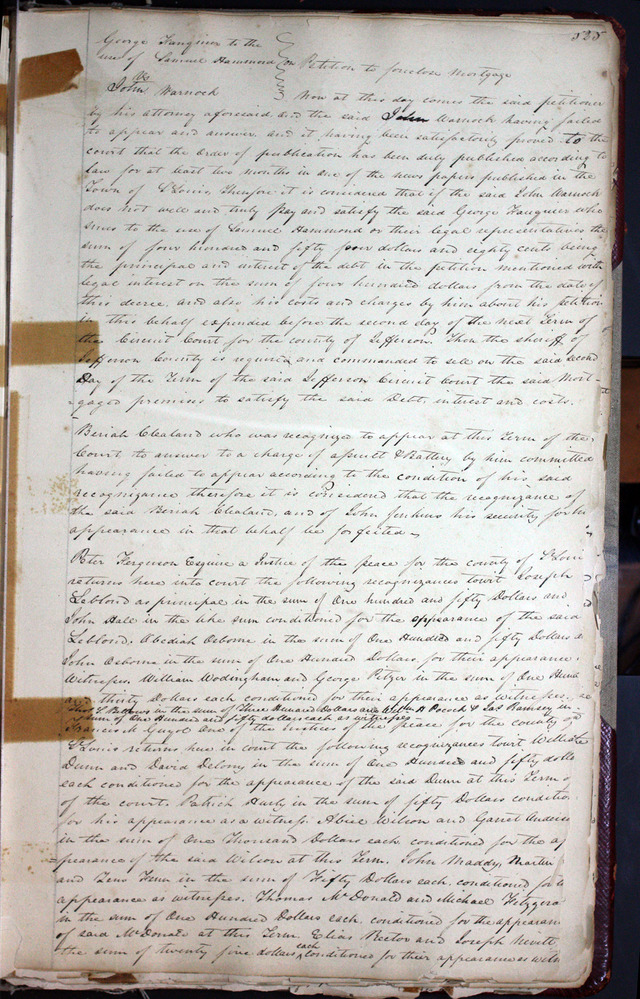 325
George Fauguier to the
use of Samuel Hammond on Petition to foreclose Mortgage
vs
John Warnock Now at this day comes the said petitioner
by his attorney aforesaid and the said John Warnock having failed
to appear and answer and it having been satisfactorily proved to the
court that the order of publication has been duly published according to
law for at least two months in one of the news papers published in the
Town of St Louis, Therefore it is considered that if the said John Warnock
does not well and truly pay and satisfy the said George Fauguier who
sues to the use of Samuel Hammond or their legal representatives the
sum of four hundred and fifty four dollars and eighty cents being
the principal and interest of the debt in the petition mentioned with
legal interest on the sum of four hundred dollars from the date of
this decree, and also his costs and charges by him about his petition
in this behalf expended before the second day of the next Term of
the Circuit Court for the county of Jefferson. Then the sheriff of
Jefferson County is required and commanded to sell on the said second
Day of the Term of the said Jefferson Circuit Court the said Mort-
gaged premises to satisfy the said Debt, interest and costs.
Beriah Cleland who was recognized to appear at this Term of the
Court to answer to a charge of assault & Battery by him committed
having failed to appear according to the condition of his said
recognizance therefore it is considered that the recognizance of
the said Beriah Cleland, and of John Jenkins his security for his
appearance in that behalf be forfeited
Peter Ferguson Esquire a Justice of the peace for the county of St Loui
returns here into court the following recognizances towit Joseph
Leblond as principal in the sum of One hundred and fifty Dollars and
John Hall in the like sum conditioned for the appearance of the said
Leblond. Obediah Osborne in the sum of One Hundred and fifty Dollars a
John Osborne in the sum of One Hundred Dollars, for their appearance,
Witnesses, William Wodingham and George Pitzer in the sum of One Hund
and thirty Dollars each conditioned for their appearance as witnesses,
in the sum of Three Hundred Dollars and Willm. H. Pocock & Jas Ramsey in
sum of One Hundred and fifty dollars each as witnesses
Francois Guyol One of the justices of the peace for the county of
St Louis returns here in court the following recognizances towit William
Dunn and David Delony in the sum of One Hundred and fifty dolla
each conditioned for the appearance of the said Dunn at this Term o
of the court. Patrick Darby in the sum of fifty Dollars condition
for his appearance as a witness. Abiel Wilson and Garret
in the sum of One Thousand Dollars each conditioned for the ap
pearance of the said Wilson at this Term. John Maddy, Martin
and Zeno Fenn in the sum of Fifty Dollars each conditioned for th
appearance as witnesses. Thomas McDonald and Michael Fitzgera
in the sum of One Hundred Dollars each, conditioned for the appearan
of said McDonald at this Term. Elias Rector and Joseph Nevitt
the sum of twenty five dollars each conditioned for their appearance as witn